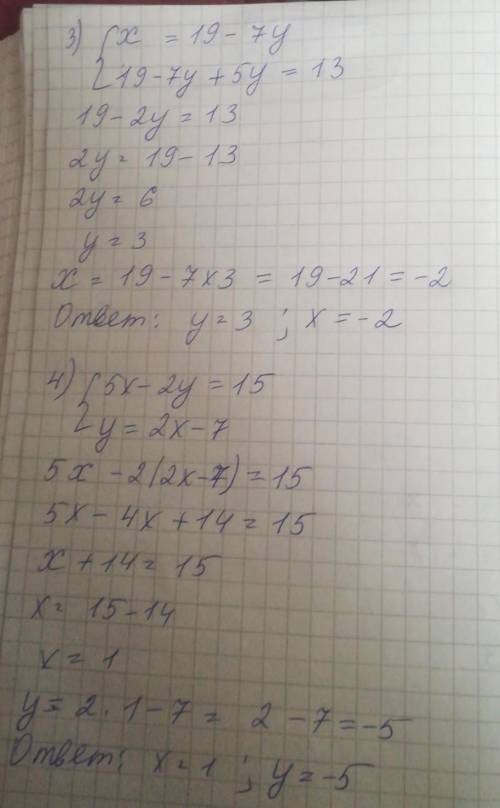 3) { x = 19 - 7y
{ 19 - 7y + 5y = 13
19 - 2y = 13
2y = 19 - 13
2y = 6
y = 3
x = 19 - 7 × 3 = 19 - 21 = -2
Ответ: y = 3 ; x = -2
4) { 5x - 2y = 15
{ y = 2x - 7
5x - 2(2x - 7) = 15
5x - 4x + 14 = 15
x + 14 = 15
x = 15 - 14
x = 1
y = 2 · 1 - 7 = 2 - 7 = -5
Ответ: x = 1 ; y = -5